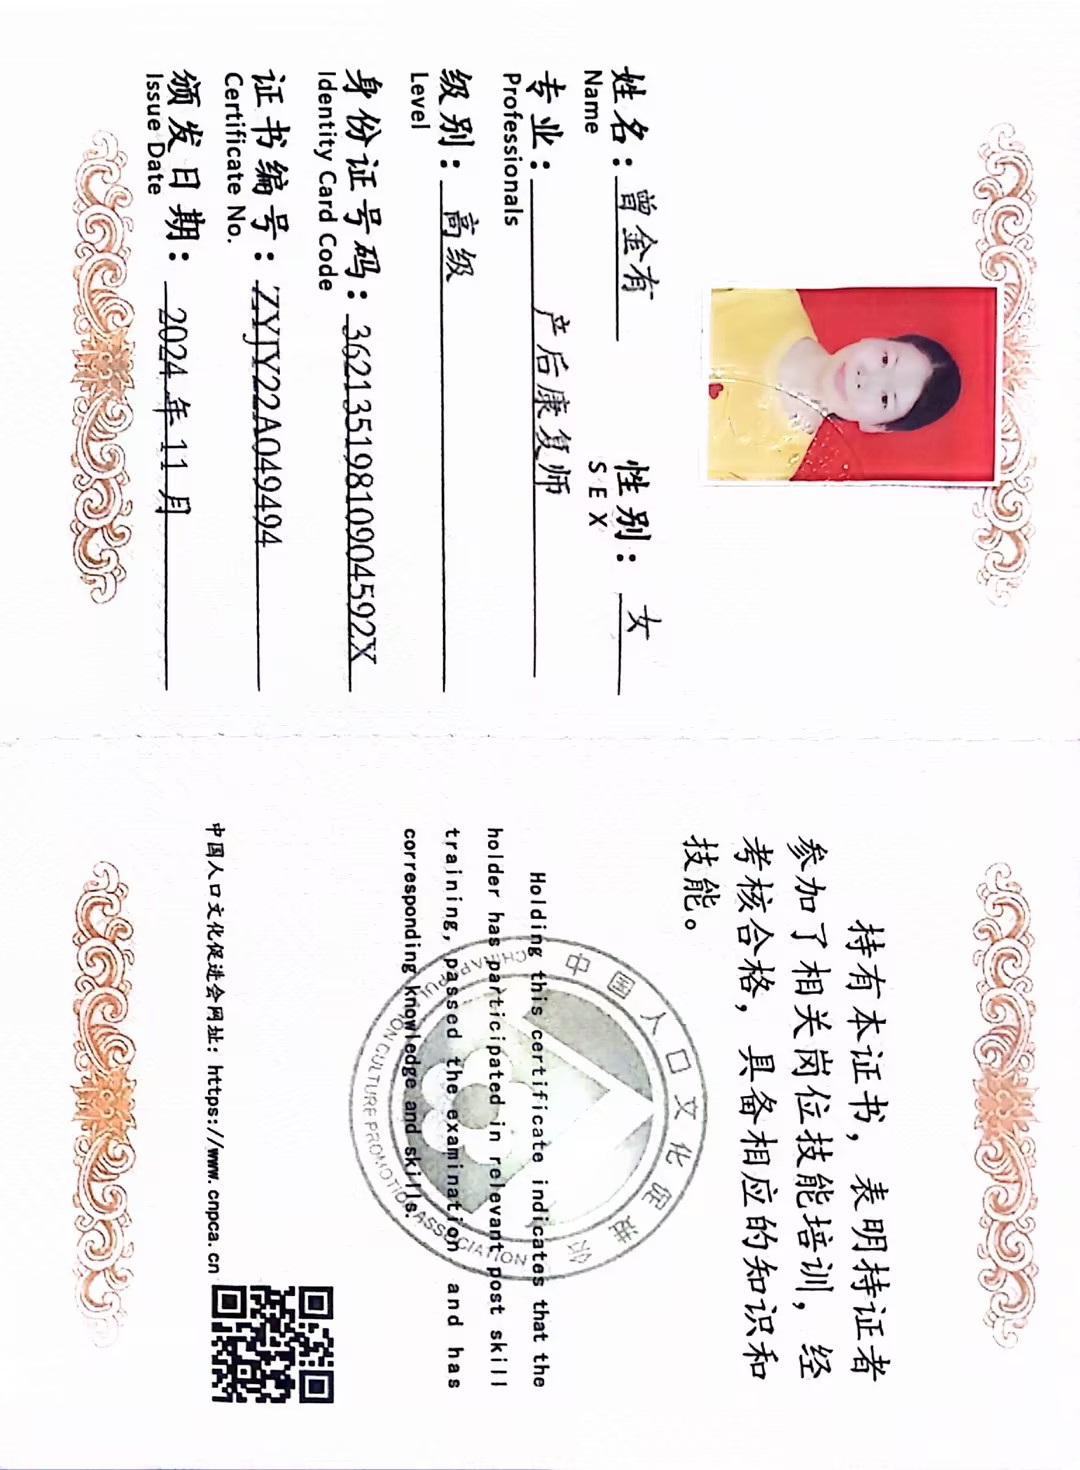 姓名：曾金有 性别：女
Name SEX
专业：产后康复师
Professionals
级别：高级
Level
身份证号码：36213519810904592X
Identity Card Code
证书编号：ZYJY22A049494
Certificate No.
颁发日期：2024年11月
Issue Date
持有本证书，表明持证者
参加了相关岗位技能培训，经
考核合格，具备相应的知识和
技能。
Holding this certificate indicates that the
holder has participated in relevant post skill
training, passed the examination and has
corresponding knowledge and skills.
中国人口文化促进会
CULTURE PROMOTION ASSOCIATION
中国人口文化促进会网址：https://www.cnpca.cn